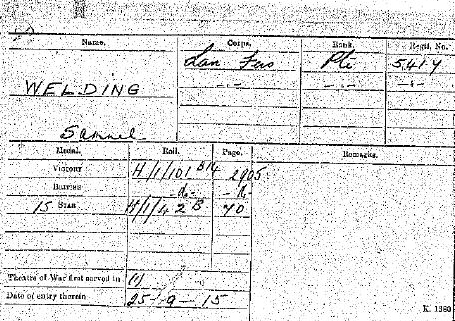 Name. Corps. Rank. Regtl. No.
WELDING Lan Fus Pte 5414
Samuel
Medal. Roll. Page. Remarks.
VICTORY H/1/101 B14 2905
BRITISH -do-
15 STAR H/1/4 2B 40
Theatre of War first served in (1)
Date of entry therein 25-9-15
K. 1380